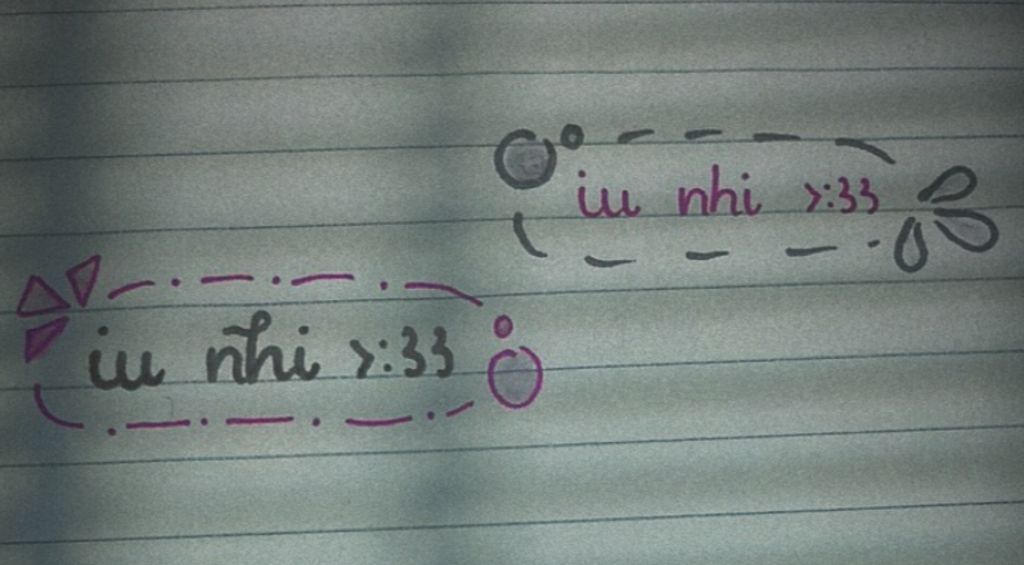 iu nhi >:33
iu nhi >:33